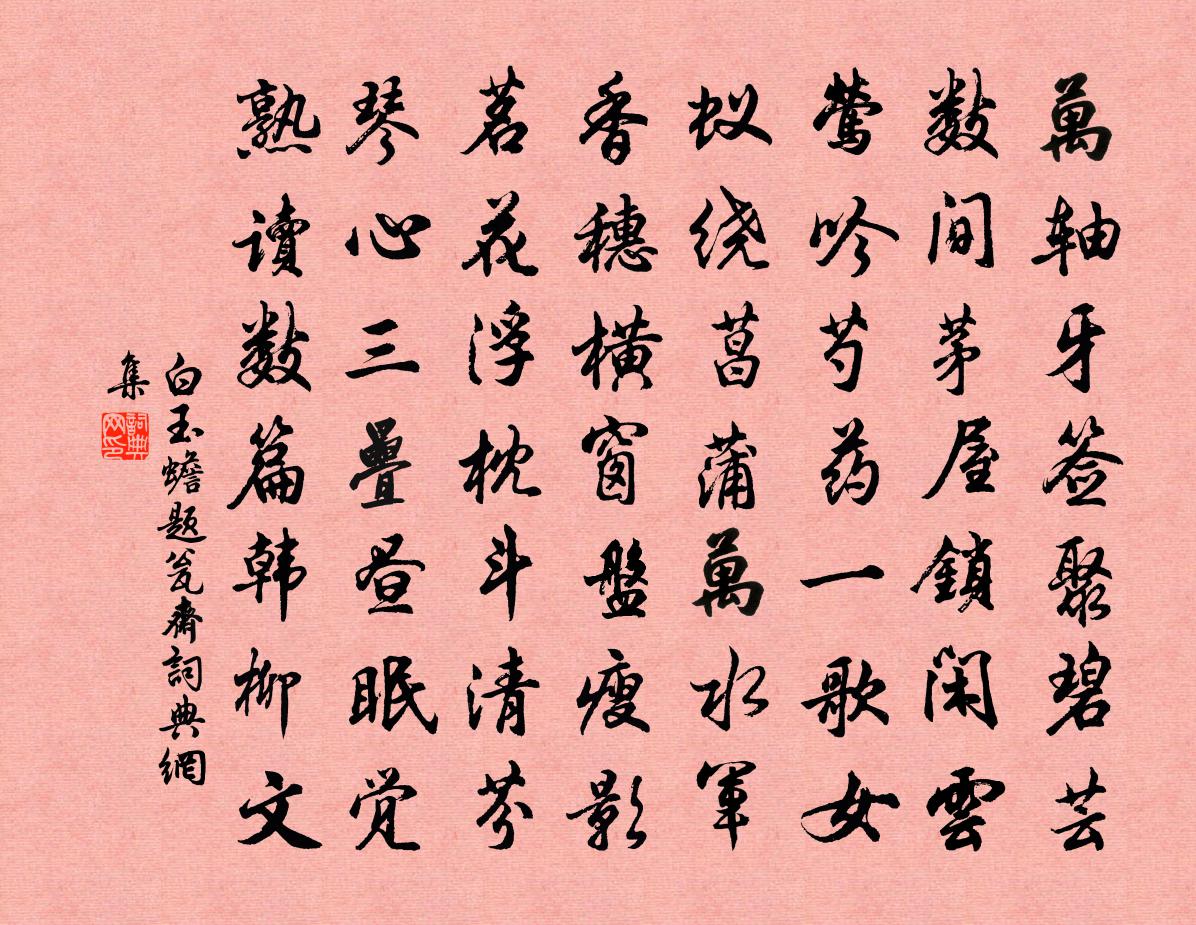 萬轴牙签聚碧芸
数间茅屋鎖闲雲
莺吟芍药一歌女
蚁绕菖蒲萬水軍
香穗横窗盤瘦影
茗花浮枕斗清芬
琴心三疊昼眠觉
熟讀数篇韩柳文
白玉蟾题瓮斋詞典網
集
詞典网印